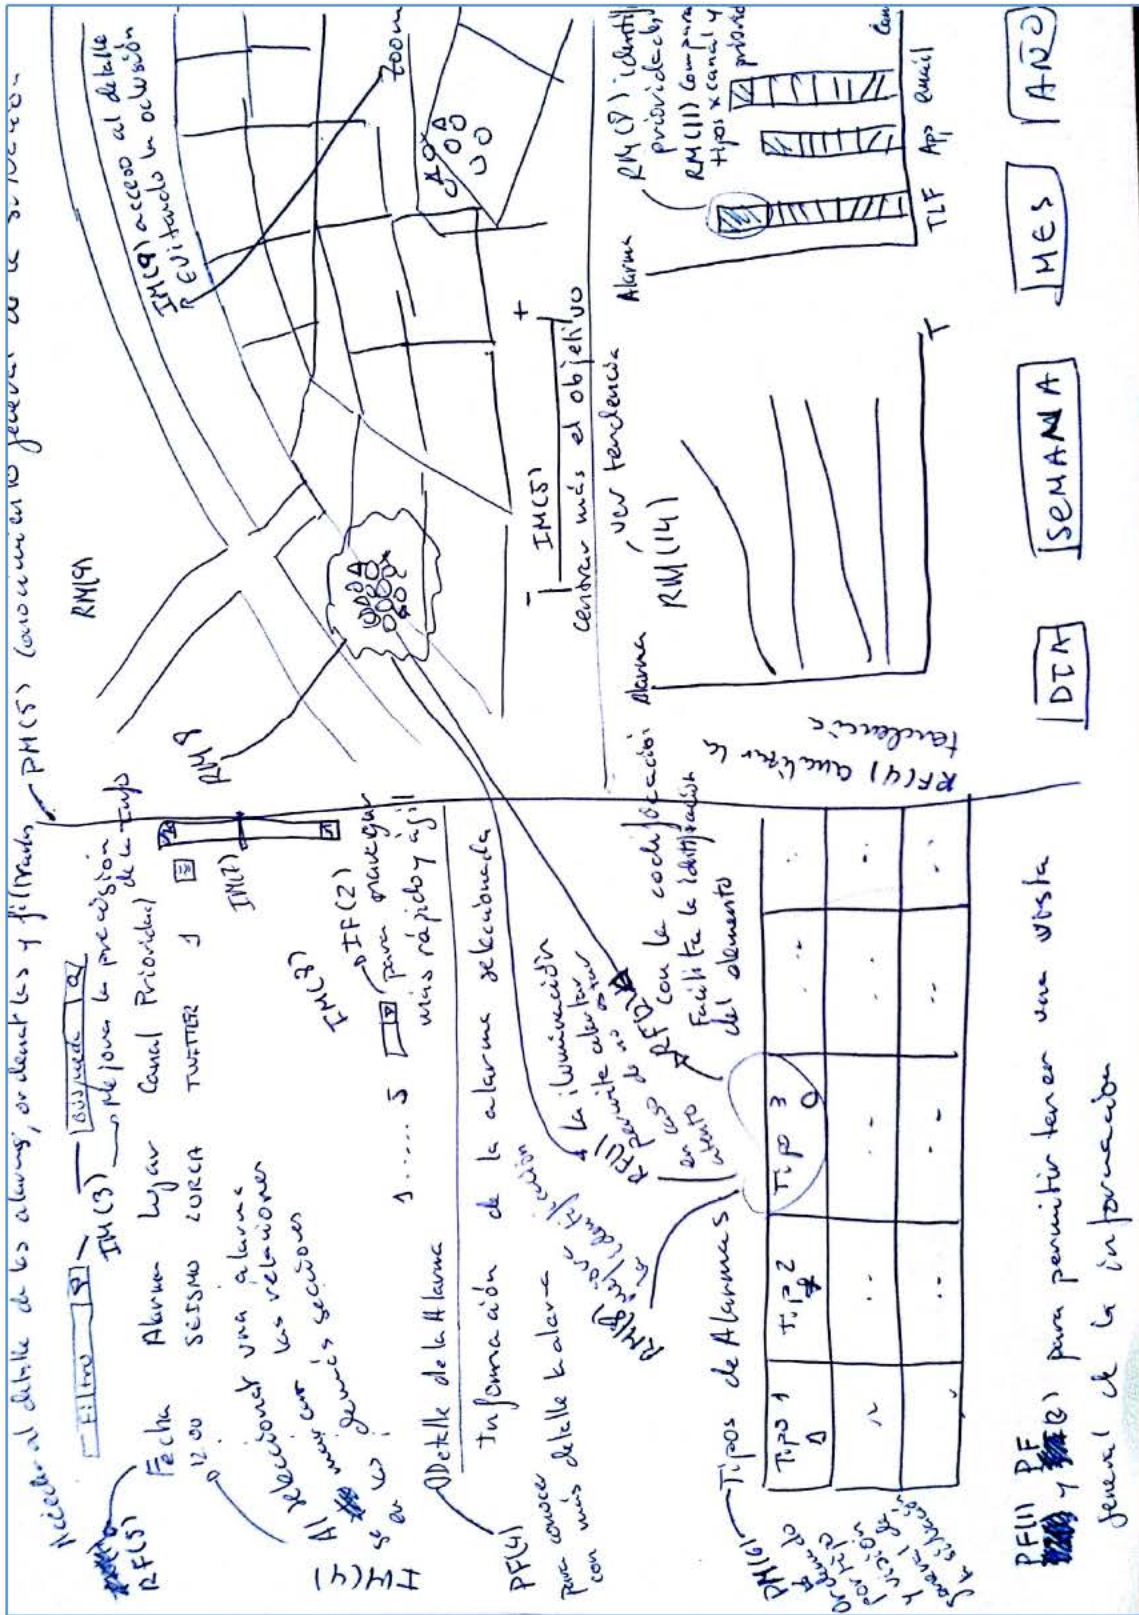 Acceder al detalle de las alarmas, ordenarlas y filtrarlas
PM(5) conocimiento general de la situación
RF(5)
Filtro
Búsqueda
IM(3)
Mejora la precisión
de la info
Fecha Alarma Lugar Canal Prioridad
12:00 SEISMO LORCA TWITTER 1
IM(7)
IM(4)
Al seleccionar una alarma
se marcan las relaciones
en las demás secciones
IM(3)
DIF(2)
para navegar
más rápido y ágil
1 ..... 5
Detalle de la Alarma
PF(4)
para conocer
con más detalle la alarma
Información de la alarma seleccionada
RF(1) la iluminación
permite alertar
en caso de no estar
atento
RF(2) con la codificación
Facilita la identificación
del elemento
RM(8) mejor identificación
Tipos de Alarmas
PM(6)
Ordenado
por tipo
y visión
general de
la situación
Tipo 1 Tipo 2 Tipo 3
PF(1) y PF(2) para permitir tener una vista
general de la información
RM(9)
RM 8
IM(9) acceso al detalle
evitando la oclusión
Zoom
- +
IM(5)
centrar más el objetivo
Alarma
ver tendencia
RM(14)
T
RF(4) analizar la
tendencia
Alarma
RM(8) identif
prioridades
RM(11) Compara
tipos x canal y
priorid
TLF App email
DIA SEMANA MES AÑO